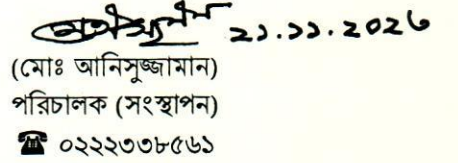 ২১.১১.২০২৩
(মোঃ আনিসুজ্জামান)
পরিচালক (সংস্থাপন)
☎ ০২২২৩৩৮৫৬১